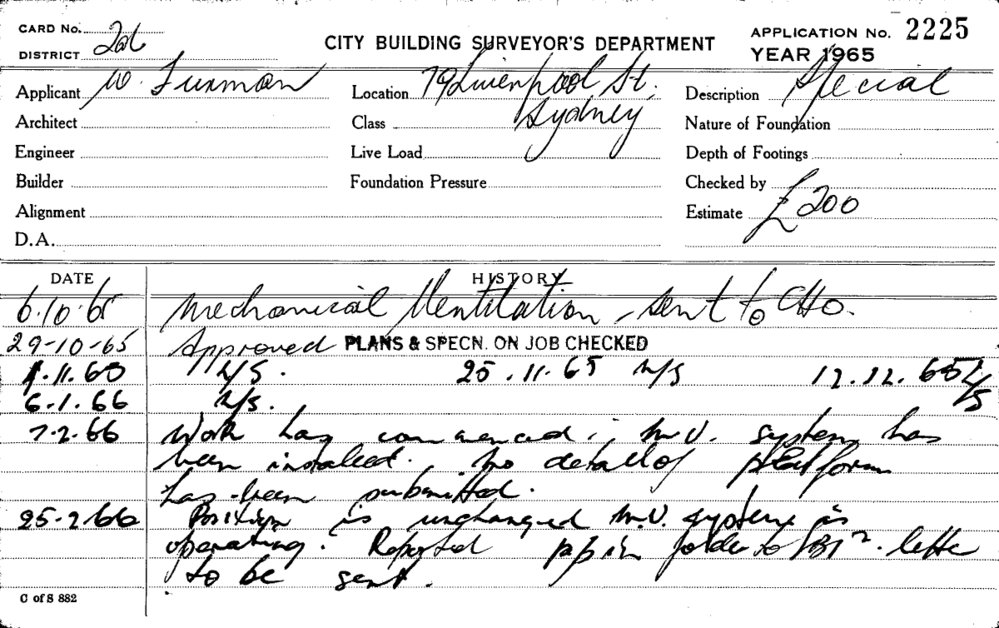 CARD No. 2ab
DISTRICT
CITY BUILDING SURVEYOR'S DEPARTMENT
APPLICATION No. 2225
YEAR 1965
Applicant W. Furman
Location 79 Liverpool St,
Sydney
Description Special
Architect
Class
Nature of Foundation
Engineer
Live Load
Depth of Footings
Builder
Foundation Pressure
Checked by
Alignment
Estimate £200
D.A.
DATE HISTORY
6.10.65 Mechanical Ventilation - sent to CHO.
29-10-65 Approved PLANS & SPECN. ON JOB CHECKED
1.11.65 N/S. 25.11.65 N/S 17.12.65 N/S
6.1.66 N/S.
7.2.66 Work has commenced; M.V. system has
been installed. No detail of platform
has been submitted.
25-2-66 Position is unchanged M.V. system is
operating. Reported in folder to letter
to be sent.
C of S 882